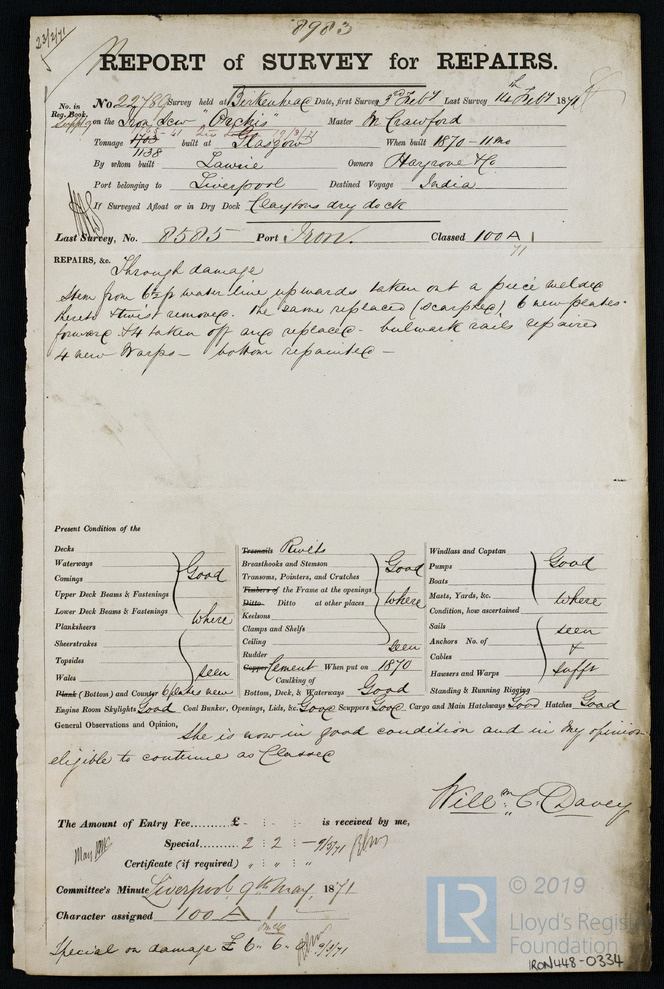 23/2/71
8983
REPORT of SURVEY for REPAIRS.
No. in Reg. Book. No. 22780 Survey held at Birkenhead Date, first Survey 3rd Feby Last Survey 14th Feby 1871
Suppt 9 on the Iron Scw "Orchis" Master M Crawford
Tonnage 1703 1138 built at Glasgow When built 1870 - 11 mo
By whom built Lawrie Owners Hargrove & Co
Port belonging to Liverpool Destined Voyage India
If Surveyed Afloat or in Dry Dock Claytons dry dock
Last Survey, No. 8585 Port Iron. Classed 100 A 1
71
REPAIRS, &c. Through damage
Stem from 6½ ft water line upwards taken out a piece welded
hereto & twist removed. the same replaced (scarphed), 6 new plates
forward & 4 taken off and replaced - bulwark rails repaired
4 new Warps - bottom repainted -
Present Condition of the
Decks
Waterways
Comings
Upper Deck Beams & Fastenings
Lower Deck Beams & Fastenings
Planksheers
Sheerstrakes
Topsides
Wales
Good where seen
Plank (Bottom) and Counter 6 plates new
Treenails Rivets
Breasthooks and Stemson
Transoms, Pointers, and Crutches
Timbers of the Frame at the openings
Ditto Ditto at other places
Keelsons
Clamps and Shelfs
Ceiling
Rudder
Good where seen
Copper Cement When put on 1870
Caulking of
Bottom, Deck, & Waterways Good
Windlass and Capstan
Pumps
Boats
Masts, Yards, &c.
Condition, how ascertained
Sails
Anchors No. of
Cables
Hawsers and Warps
Standing & Running Rigging
Good where seen & sufft
Engine Room Skylights Good Coal Bunker, Openings, Lids, &c. Good Scuppers Good Cargo and Main Hatchways Good Hatches Good
General Observations and Opinion, She is now in good condition and in my opinion
eligible to continue as Classed
Willm. C. Davey
The Amount of Entry Fee.......... £ - : - : - is received by me,
Special...... 2 : 2 : - 9/5/71
Certificate (if required) " : " : "
Committee's Minute Liverpool, 9th May, 1871
Character assigned 100 A 1
Special on damage £ 6. 6. 0
© 2019
LR
Lloyd's Register
Foundation
IRON448-0334